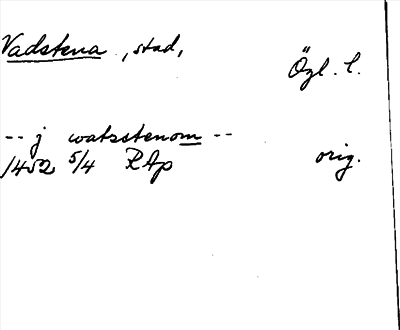 Vadstena, stad,
Özl. l.
-- j watzstenom --
1452 5/4 RAp
orig.